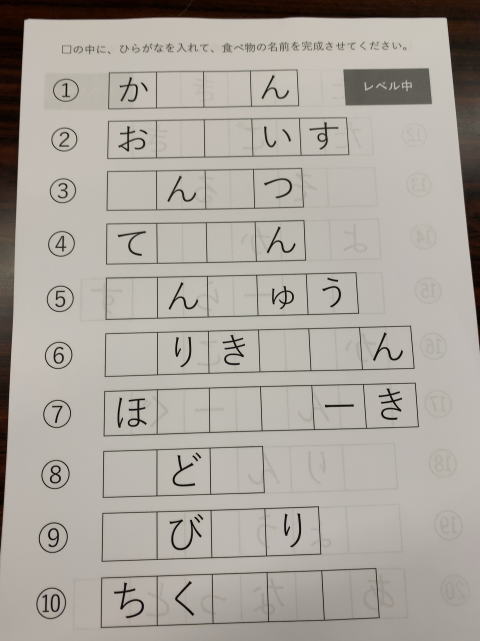 □の中に、ひらがなを入れて、食べ物の名前を完成させてください。
レベル中
① か ん
② お い す
③ ん つ
④ て ん
⑤ ん ゅ う
⑥ り き ん
⑦ ほ ー き
⑧ ど
⑨ び り
⑩ ち く